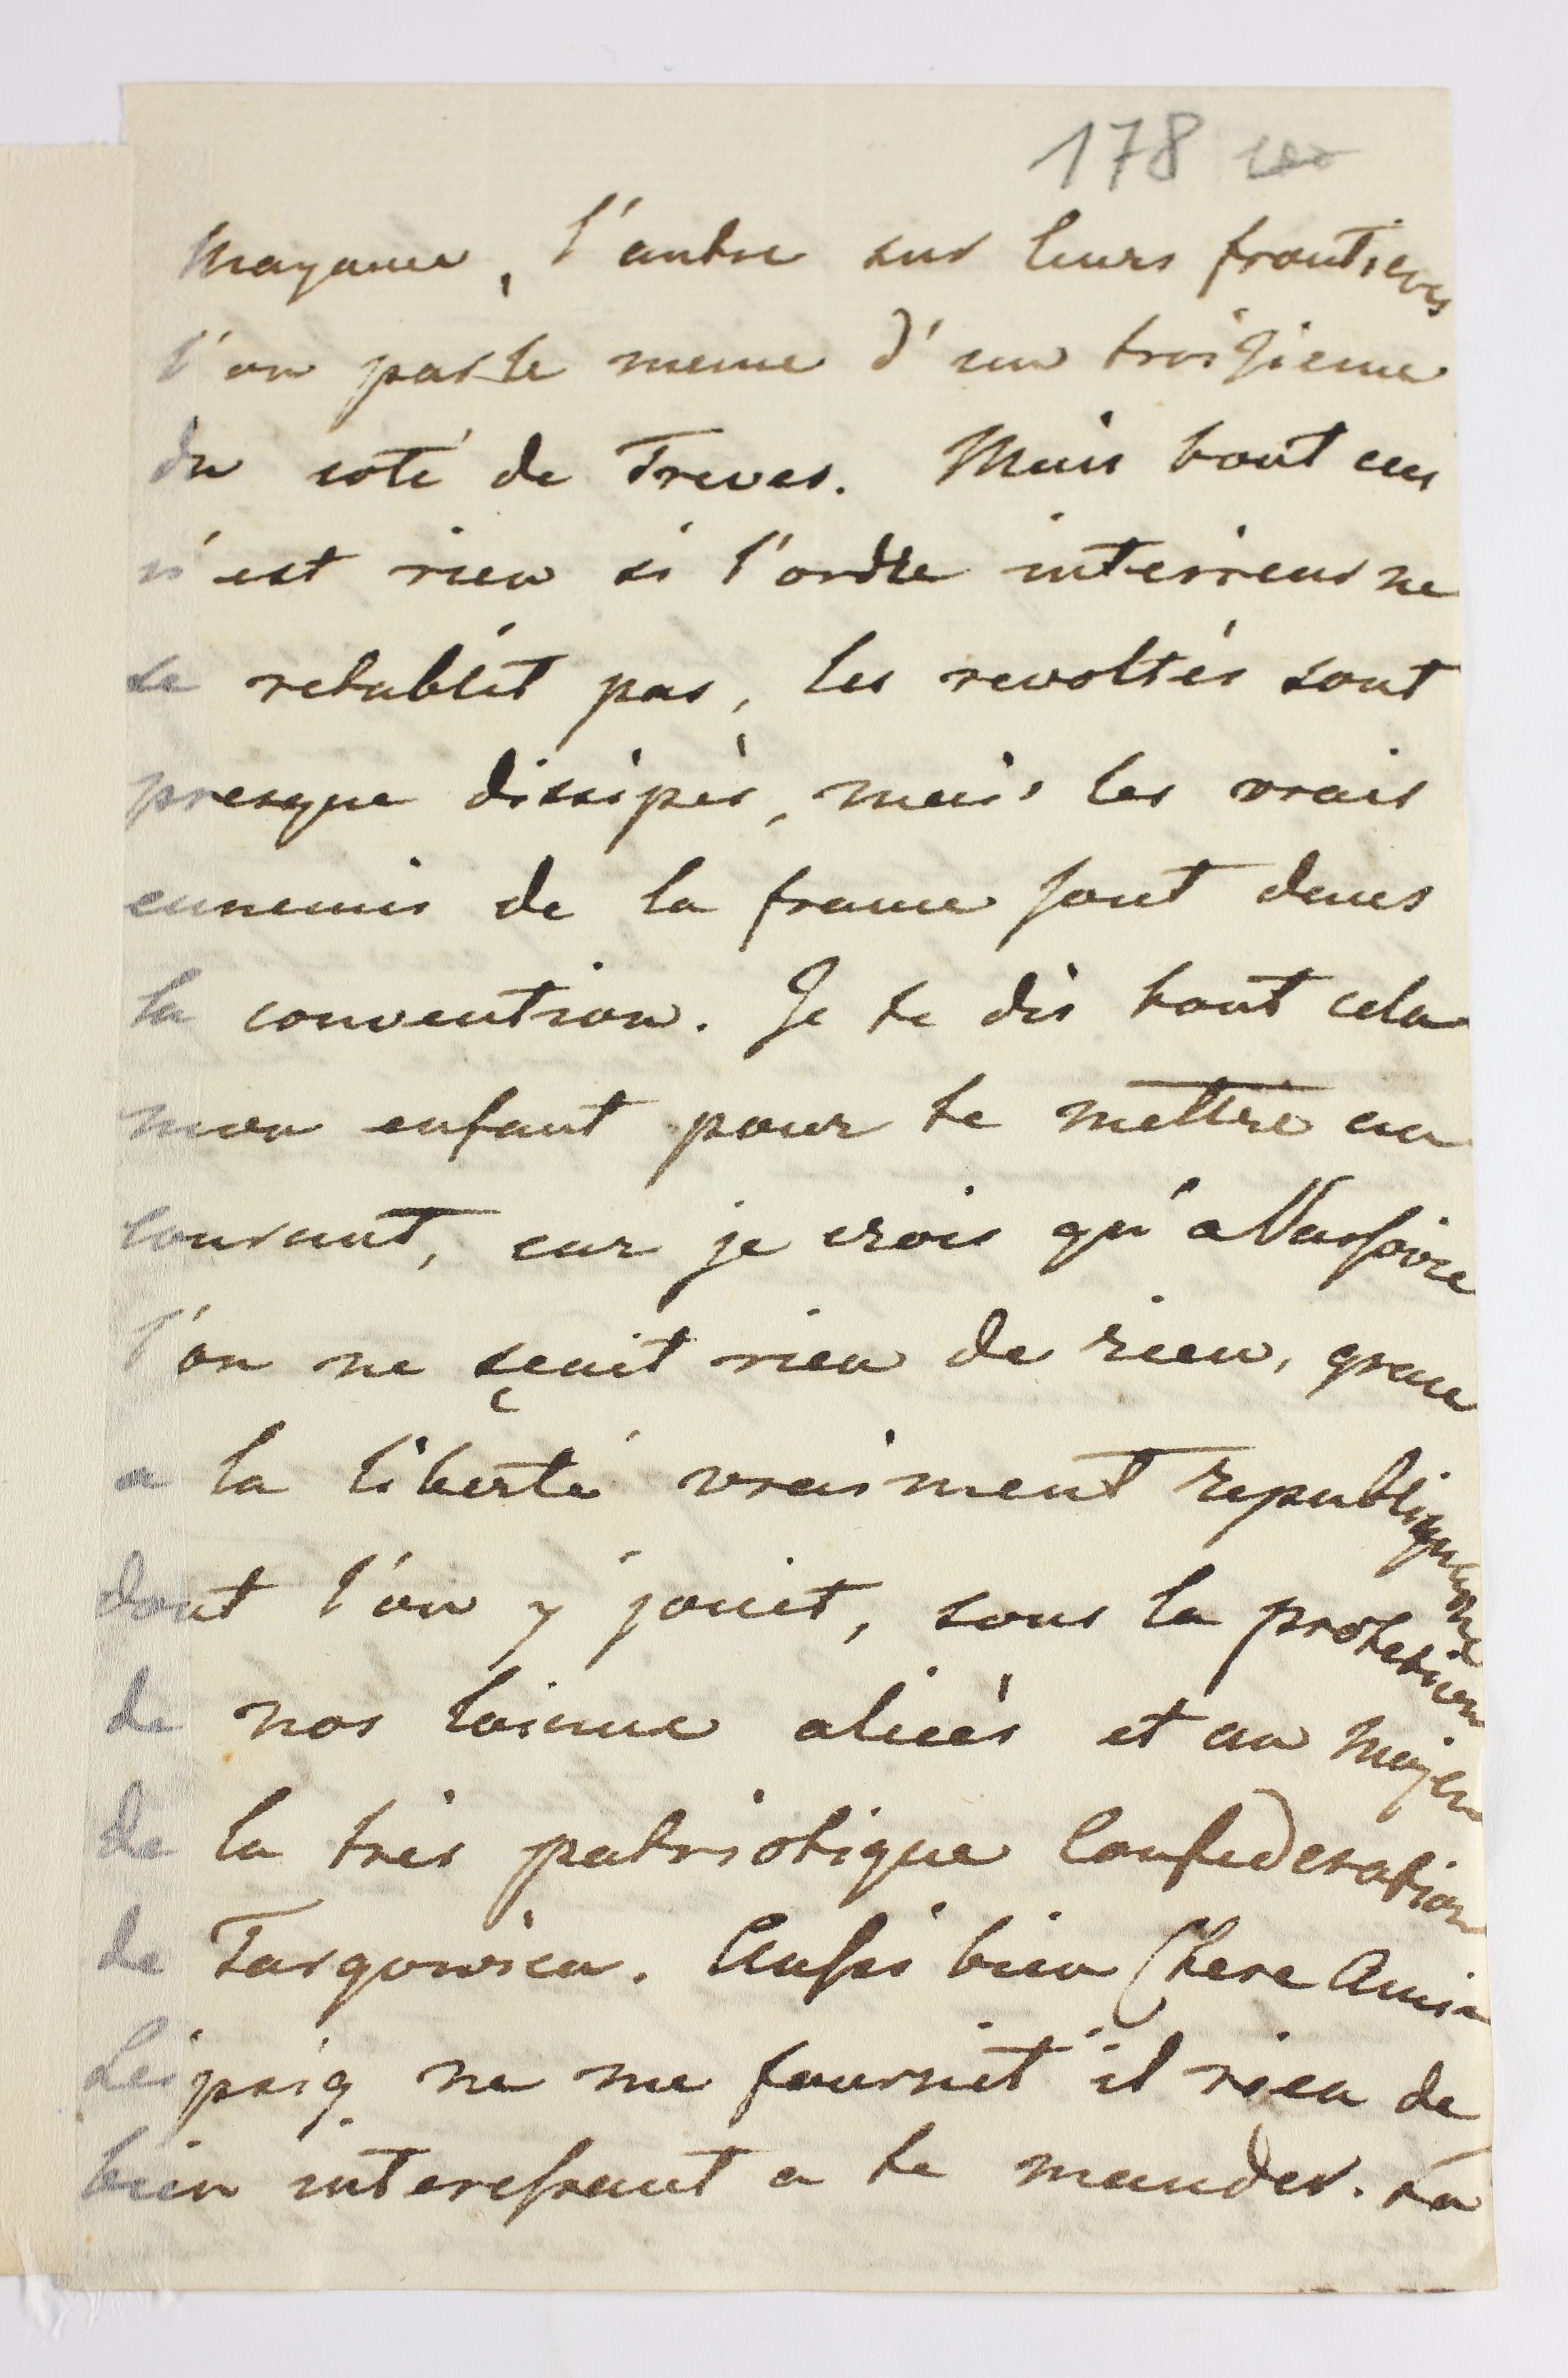 178
Mayance, l'autre sur leurs frontieres
l'on parle meme d'un troisieme
du coté de Treves. Mais tout cela
n'est rien si l'ordre interieur ne
se retablit pas, les revoltés sont
presque dissipés, mais les vrais
ennemis de la france sont dans
la convention. Je te dis tout cela
mon enfant pour te mettre au
courant, car je crois qu'a Varsovie
l'on ne sçait rien de rien, grace
a la liberté vraiment republiquaine
dont l'on y jouit, sous la protection
de nos bien aliées et au moyen
de la très patriotique Confederation
de Targowica. Aussi bien Chere Amie
Leipsig ne me fournit il rien de
bien interessant a te mander. La